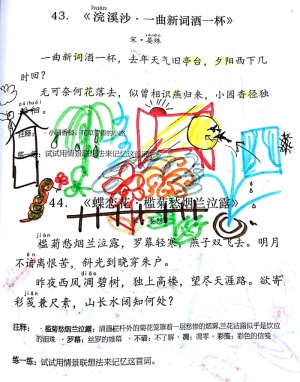 huàn
43. 《浣溪沙·一曲新词酒一杯》
宋·晏殊
一曲新词酒一杯，去年天气旧亭台，夕阳西下几
时回？
无可奈何花落去，似曾相识燕归来，小园香径独
pái huái
注释： ·小园香径：花草芳香的小路
练一练：试试用情景联想法来记忆这首词。
44. 《蝶恋花·槛菊愁烟兰泣露》
槛菊愁烟兰泣露，罗幕轻寒，燕子双飞去。明月
不谙离恨苦，斜光到晓穿朱户。
昨夜西风凋碧树，独上高楼，望尽天涯路。欲寄
彩笺兼尺素，山长水阔知何处？
注释： ·槛菊愁烟兰泣露：清晨栏杆外的菊花笼罩着一层愁惨的烟雾,兰花沾露似乎是饮泣
的泪珠 ·罗幕：丝罗的帷幕 ·不谙：不了解 ·凋：凋零 ·彩笺：彩色的信笺
练一练：试试用情景联想法来记忆这首词。